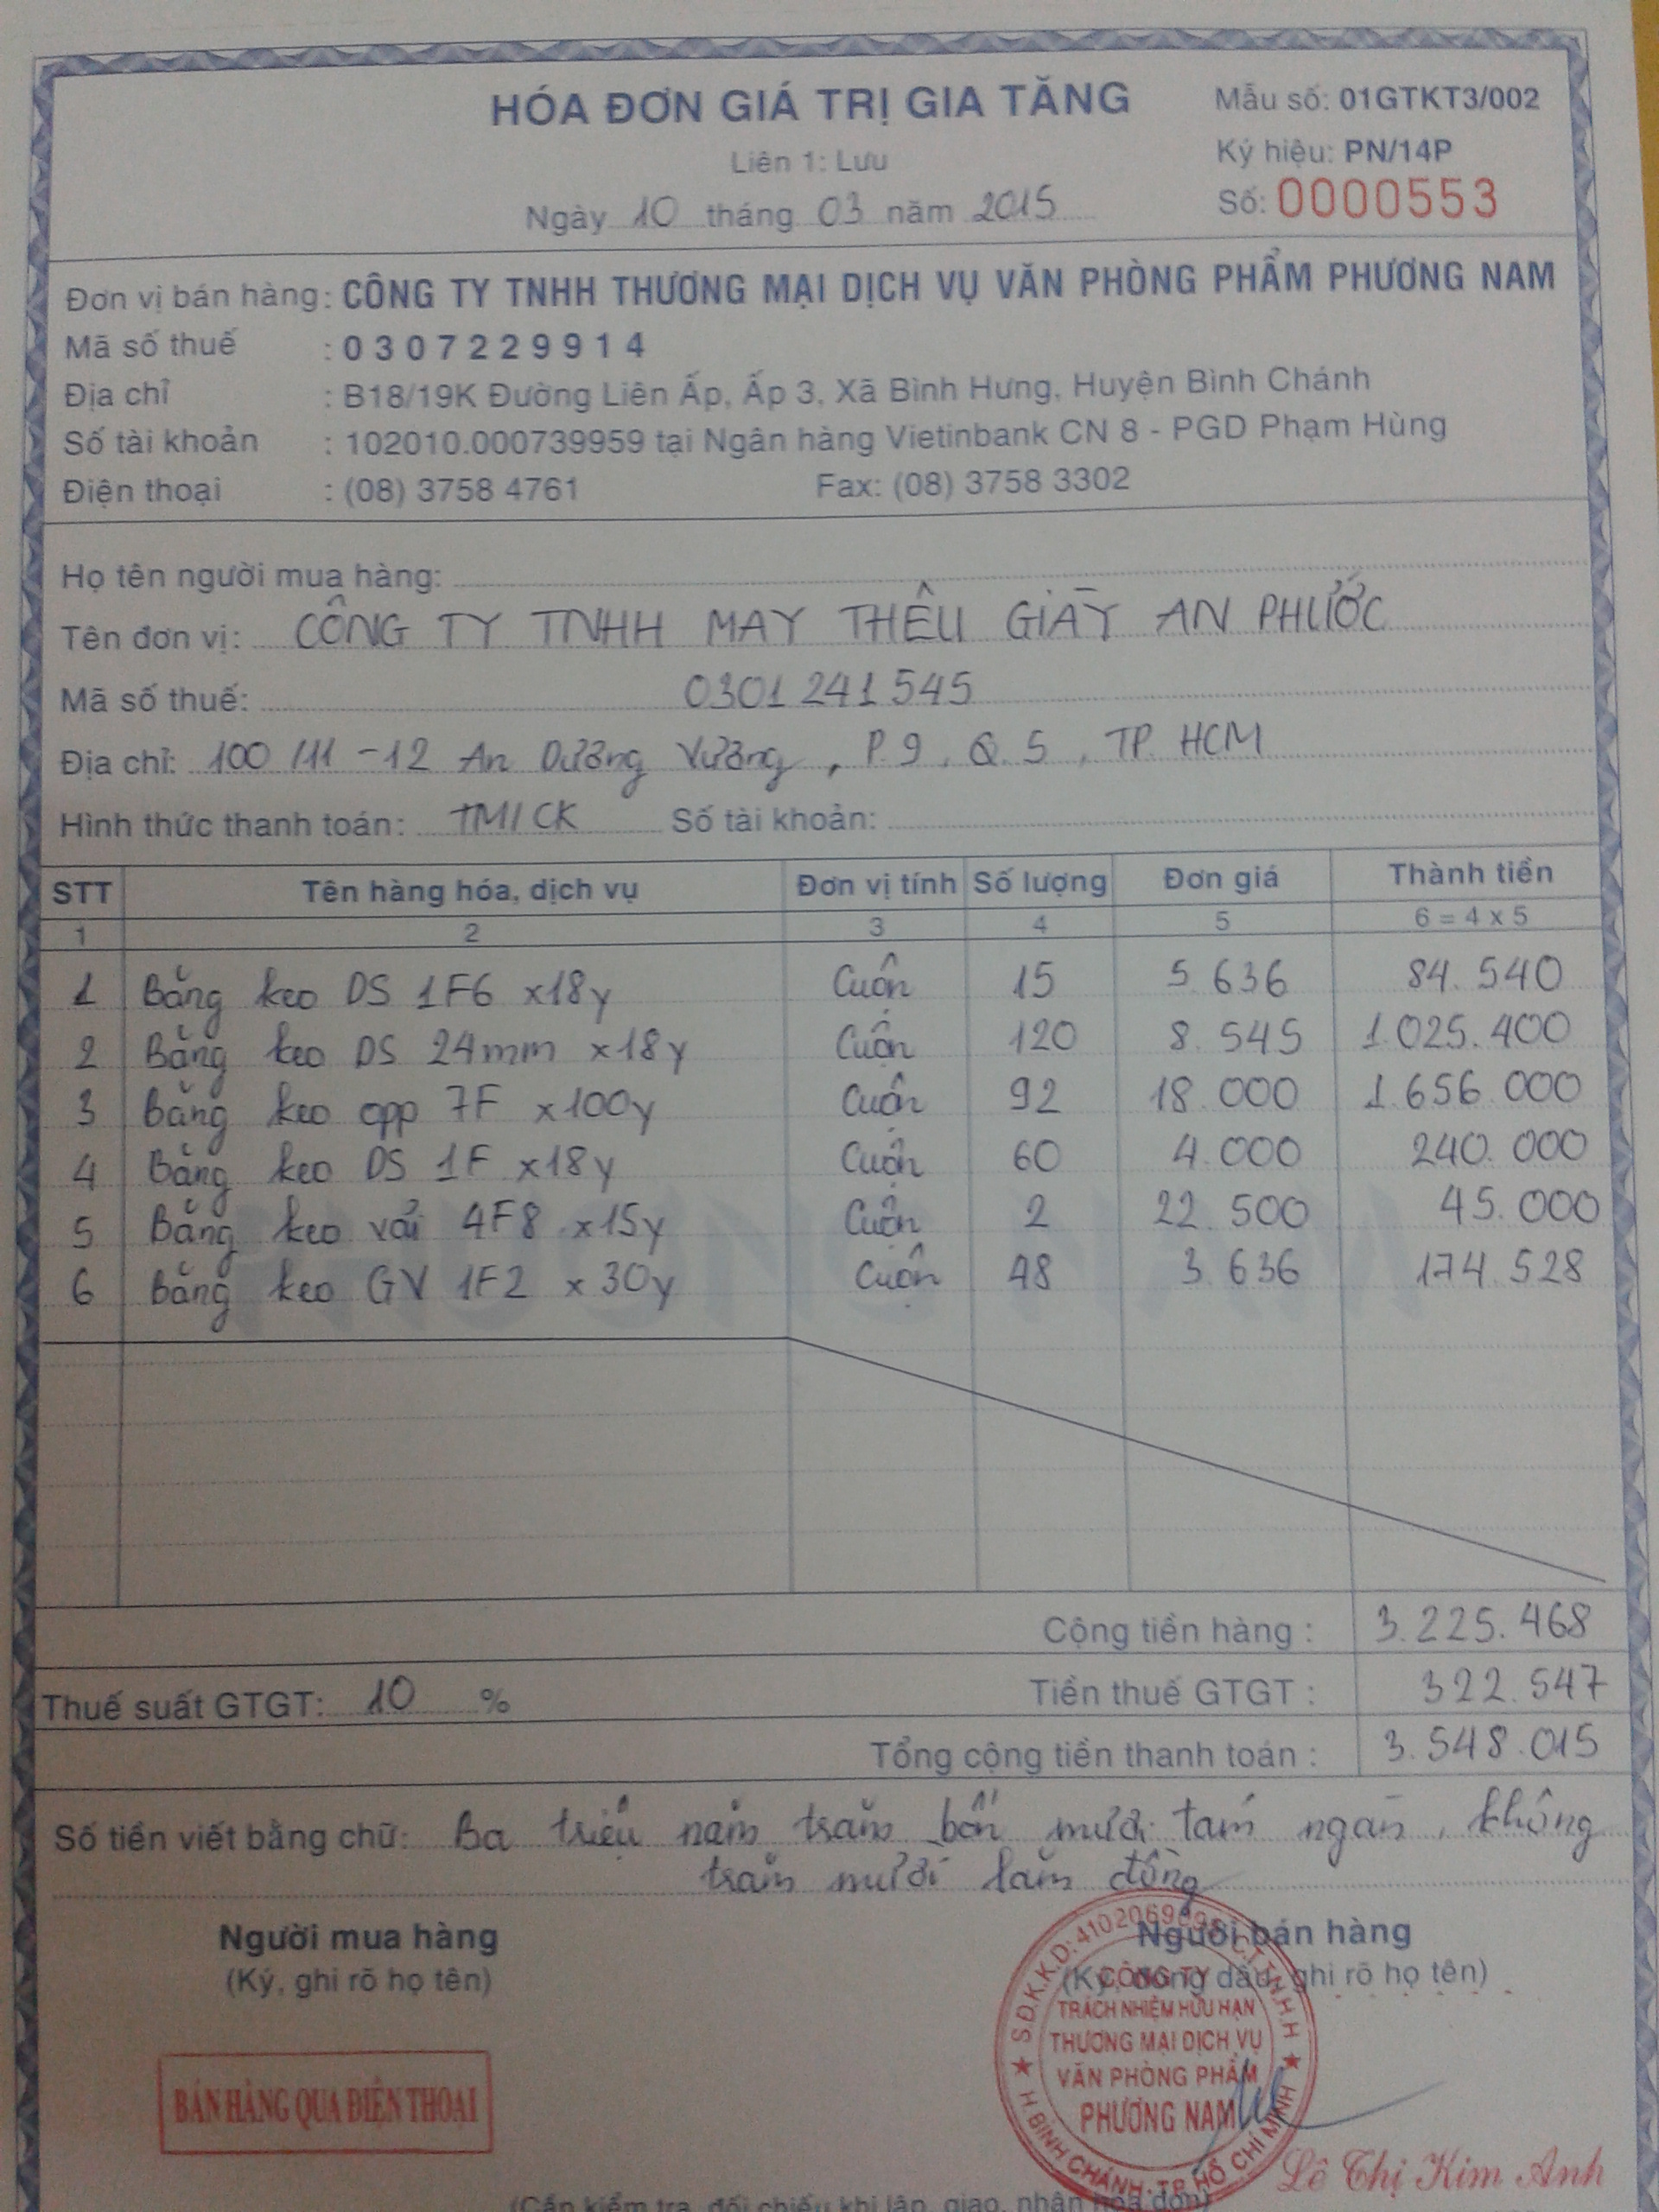 HÓA ĐƠN GIÁ TRỊ GIA TĂNG
Mẫu số: 01GTKT3/002
Liên 1: Lưu
Ký hiệu: PN/14P
Ngày 10 tháng 03 năm 2015
Số: 0000553
Đơn vị bán hàng: CÔNG TY TNHH THƯƠNG MẠI DỊCH VỤ VĂN PHÒNG PHẨM PHƯƠNG NAM
Mã số thuế : 0307229914
Địa chỉ : B18/19K Đường Liên Ấp, Ấp 3, Xã Bình Hưng, Huyện Bình Chánh
Số tài khoản : 102010.000739959 tại Ngân hàng Vietinbank CN 8 - PGD Phạm Hùng
Điện thoại : (08) 3758 4761 Fax: (08) 3758 3302
Họ tên người mua hàng:
Tên đơn vị: CÔNG TY TNHH MAY THÊU GIÀY AN PHƯỚC
Mã số thuế: 0301241545
Địa chỉ: 100/11-12 An Dương Vương, P.9, Q.5, TP. HCM
Hình thức thanh toán: TM/CK Số tài khoản:
STT Tên hàng hóa, dịch vụ Đơn vị tính Số lượng Đơn giá Thành tiền
1 2 3 4 5 6 = 4 x 5
1 Băng keo DS 1F6 x18y Cuộn 15 5.636 84.540
2 Băng keo DS 24mm x18y Cuộn 120 8.545 1.025.400
3 Băng keo opp 7F x100y Cuộn 92 18.000 1.656.000
4 Băng keo DS 1F x18y Cuộn 60 4.000 240.000
5 Băng keo vải 4F8 x15y Cuộn 2 22.500 45.000
6 Băng keo GV 1F2 x 30y Cuộn 48 3.636 174.528
Cộng tiền hàng : 3.225.468
Thuế suất GTGT: 10 % Tiền thuế GTGT : 322.547
Tổng cộng tiền thanh toán : 3.548.015
Số tiền viết bằng chữ: Ba triệu năm trăm bốn mươi tám ngàn, không
trăm mười lăm đồng
Người mua hàng
(Ký, ghi rõ họ tên)
Người bán hàng
(Ký, đóng dấu, ghi rõ họ tên)
BÁN HÀNG QUA ĐIỆN THOẠI
CÔNG TY
TRÁCH NHIỆM HỮU HẠN
THƯƠNG MẠI DỊCH VỤ
VĂN PHÒNG PHẨM
PHƯƠNG NAM
H.BÌNH CHÁNH-T.P HỒ CHÍ MINH
Lê Thị Kim Anh
(Cần kiểm tra, đối chiếu khi lập, giao, nhận hóa đơn)